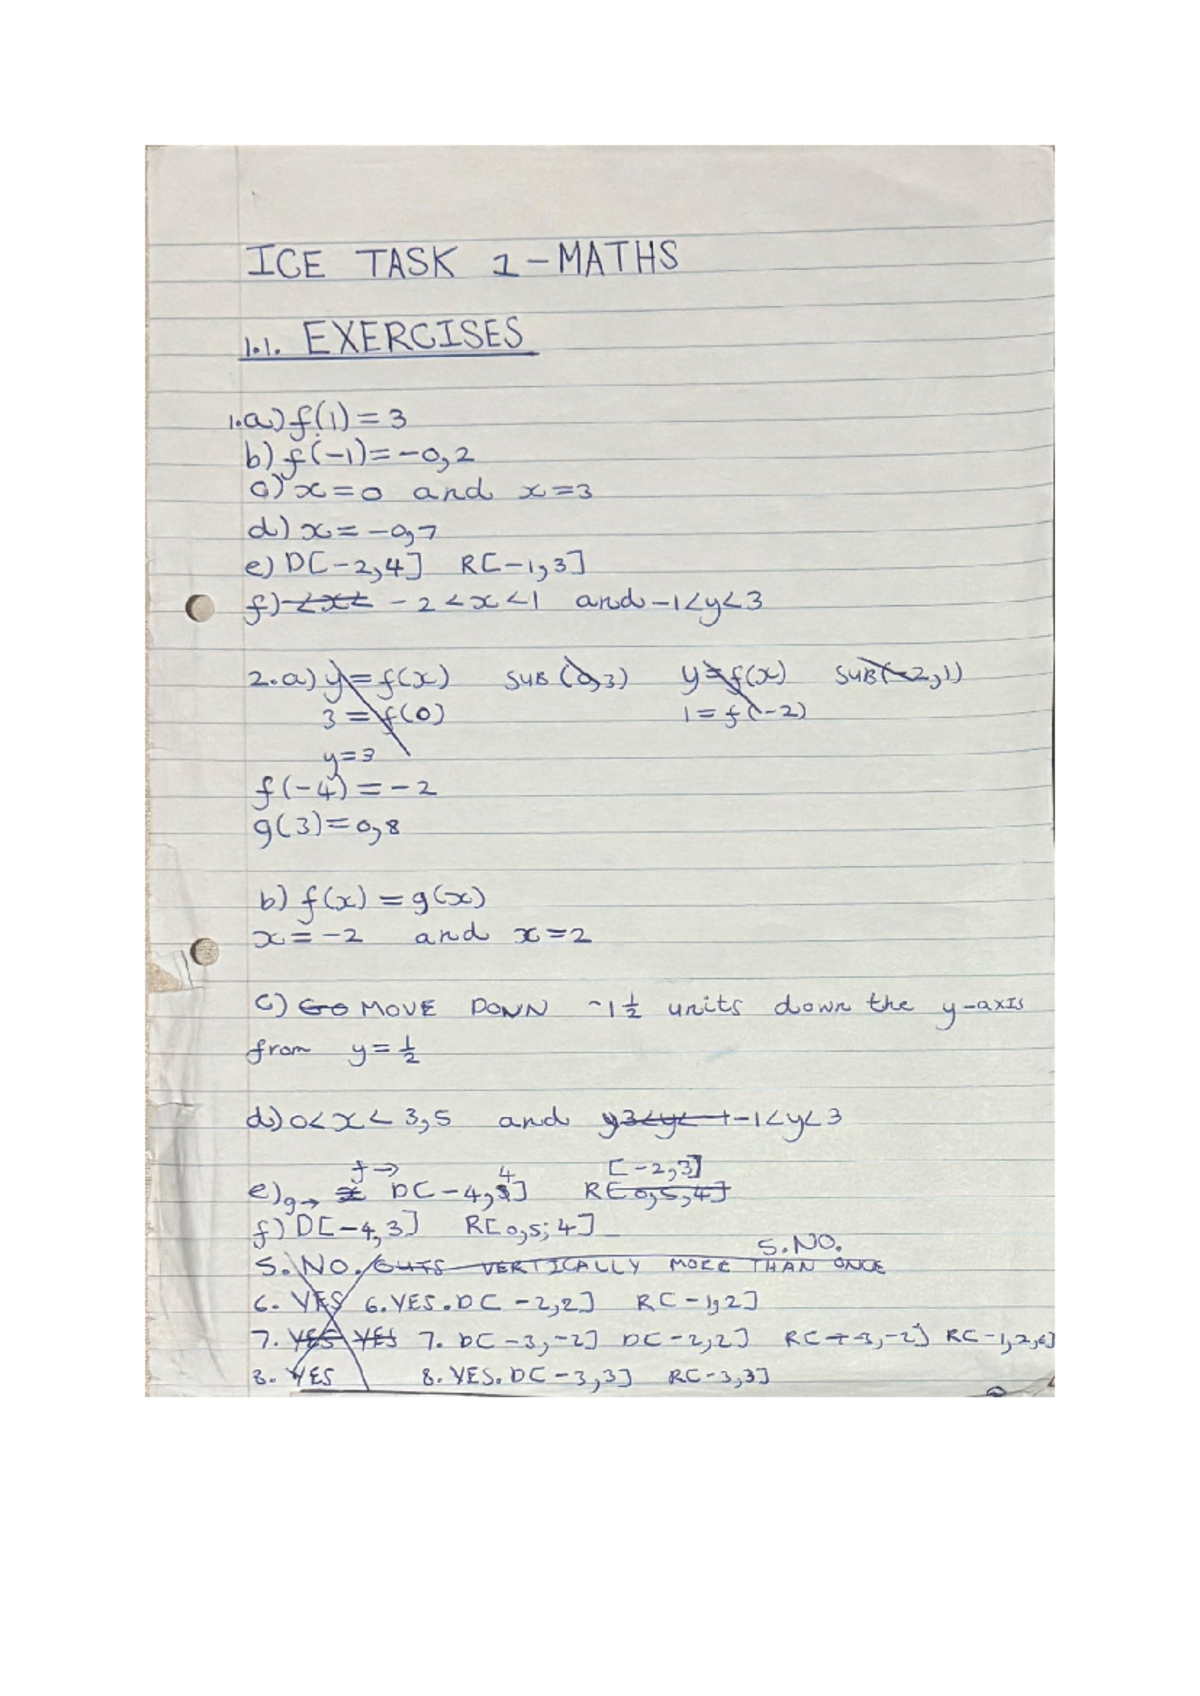 ICE TASK 1-MATHS
1.1. EXERCISES
1.a) f(1) = 3
b) f(-1) = -0,2
c) x=0 and x=3
d) x = -0,7
e) D[-2,4] R[-1,3]
f) -2<x<1 and -1<y<3
2.a) y=f(x) SUB (0,3) y=f(x) SUB(-2,1)
3 = f(0) 1= f(-2)
y=3
f(-4) = -2
g(3)=0,8
b) f(x) = g(x)
x=-2 and x=2
c) GO MOVE DOWN ~1 1/2 units down the y-axis
from y= 1/2
d) 0<x<3,5 and -1<y<3
f→ 4 [-2,3]
e) g→ D[-4,3] R[0,5,4]
f) D[-4,3] R[0,5;4]
5.NO.
5. NO. CUTS VERTICALLY MORE THAN ONCE
6. YES 6. YES. D[-2,2] R[-1,2]
7. YES YES 7. D[-3,-2] D[-2,2] R[-3,-2] R[-1,2,6]
8. YES 8. YES. D[-3,3] R[-3,3]